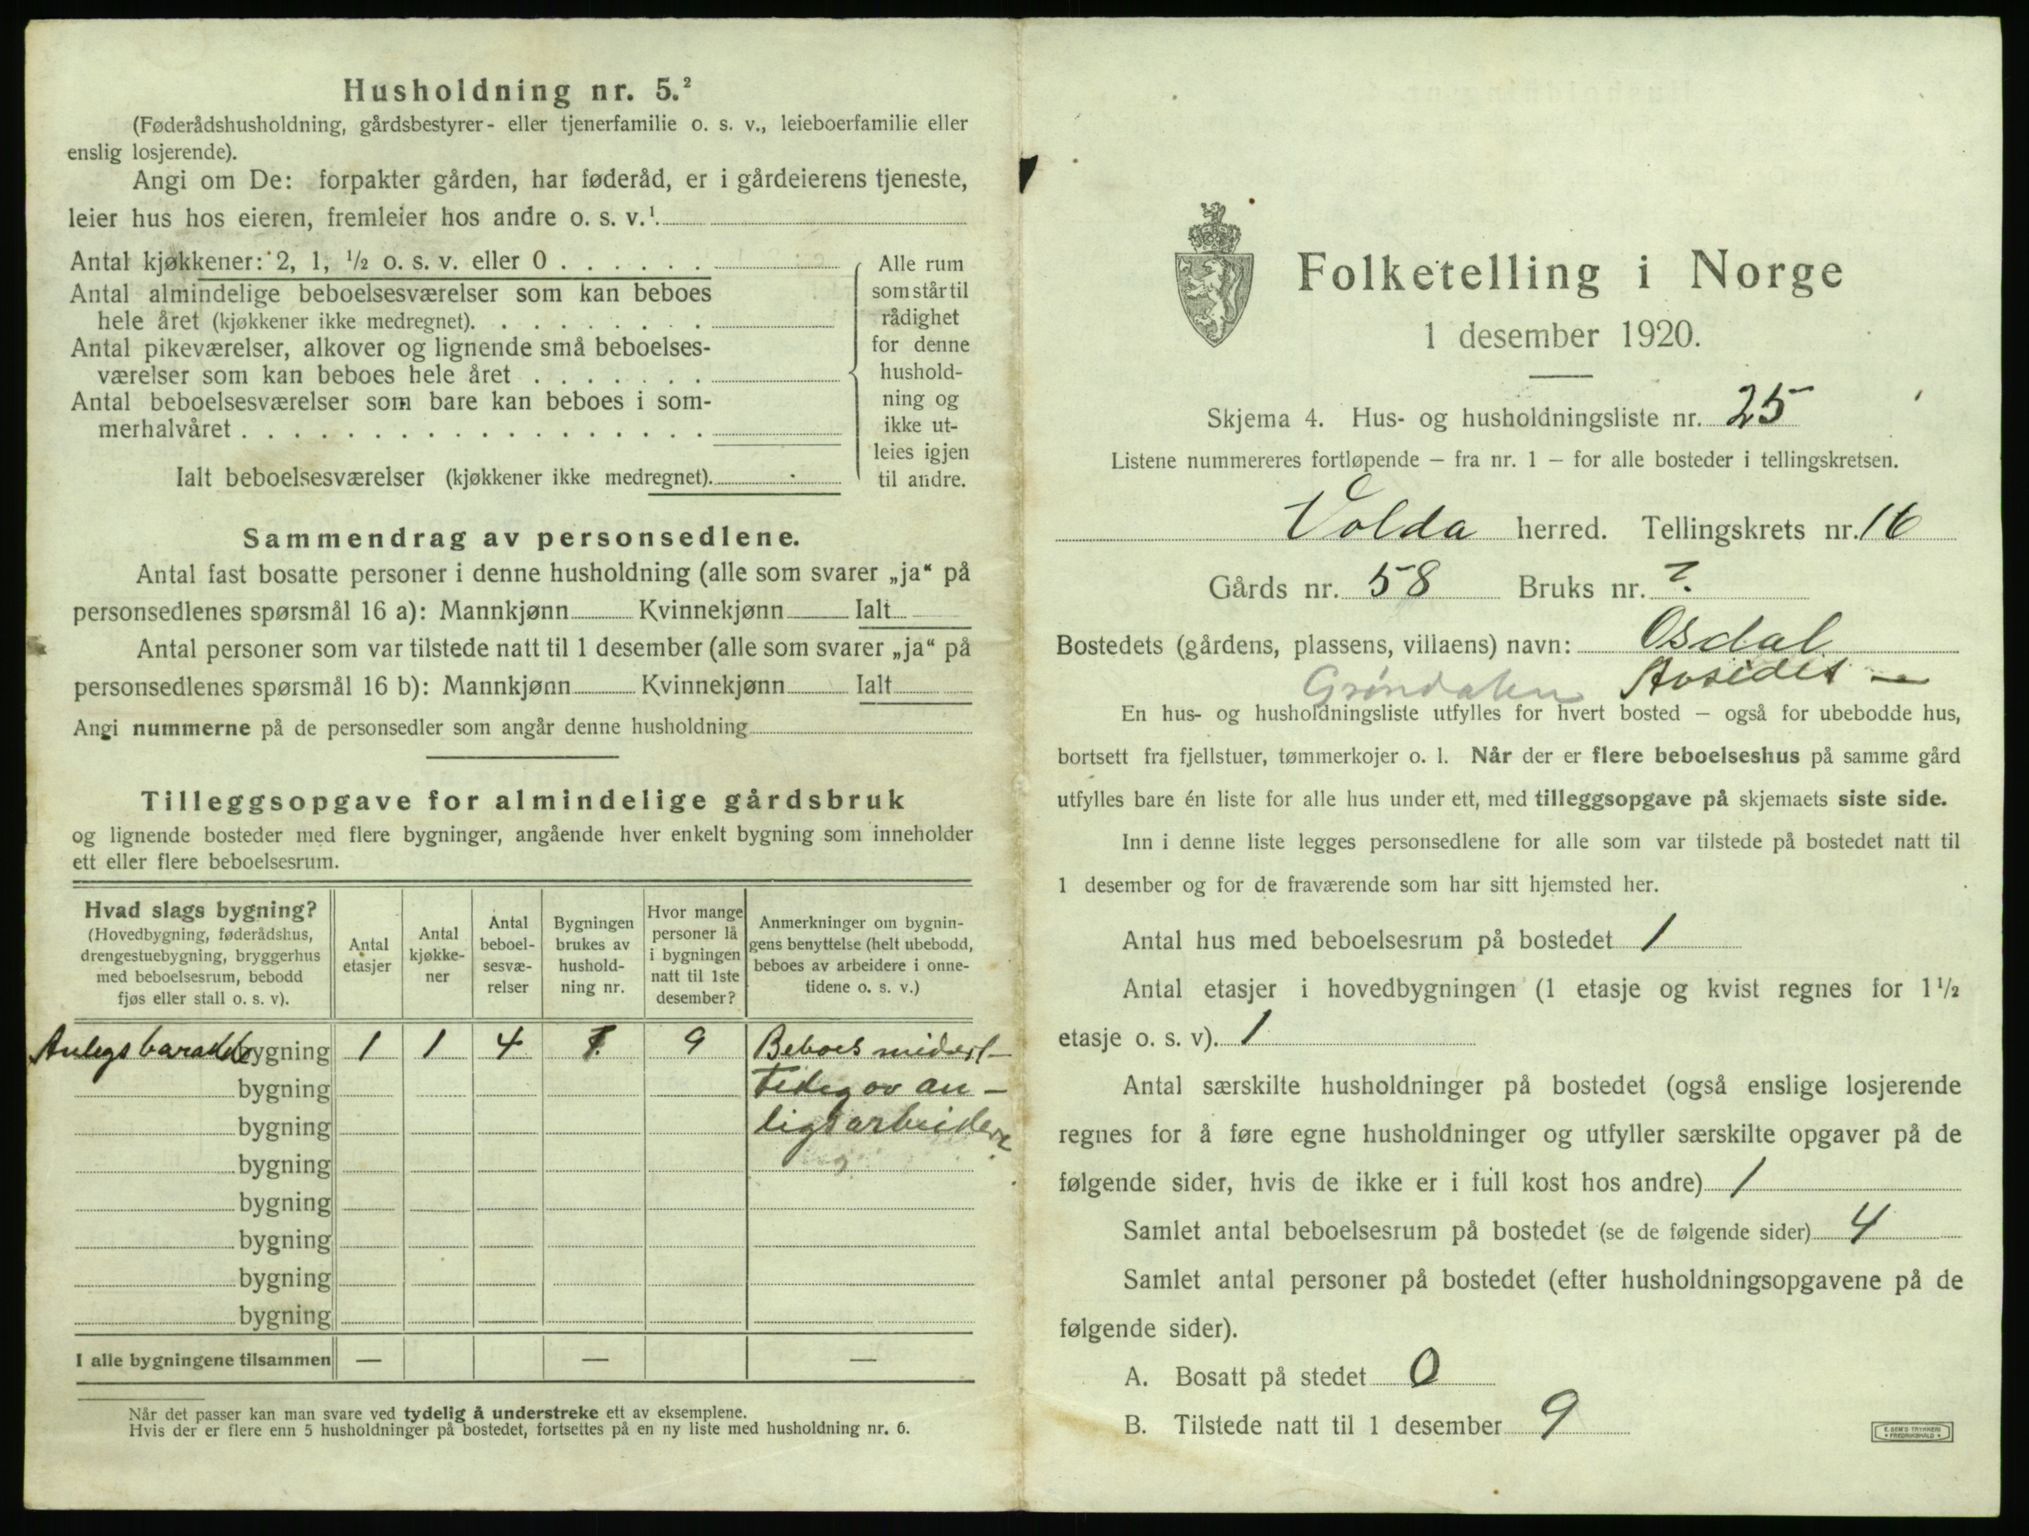 Husholdning nr. 5.²
(Føderådshusholdning, gårdsbestyrer- eller tjenerfamilie o. s. v., leieboerfamilie eller
enslig losjerende).
Angi om De: forpakter gården, har føderåd, er i gårdeierens tjeneste,
leier hus hos eieren, fremleier hos andre o. s. v.¹
Antal kjøkkener: 2, 1, ½ o. s. v. eller 0 . . . . . .
Antal almindelige beboelsesværelser som kan beboes
hele året (kjøkkener ikke medregnet). . . . . . . . .
Antal pikeværelser, alkover og lignende små beboelses-
værelser som kan beboes hele året . . . . . . .
Antal beboelsesværelser som bare kan beboes i som-
merhalvåret . . . . . . . . . . . . . . . . . .
Ialt beboelsesværelser (kjøkkener ikke medregnet).
Alle rum
som står til
rådighet
for denne
hushold-
ning og
ikke ut-
leies igjen
til andre.
Sammendrag av personsedlene.
Antal fast bosatte personer i denne husholdning (alle som svarer „ja“ på
personsedlenes spørsmål 16 a): Mannkjønn Kvinnekjønn Ialt
Antal personer som var tilstede natt til 1 desember (alle som svarer „ja“ på
personsedlenes spørsmål 16 b): Mannkjønn Kvinnekjønn Ialt
Angi nummerne på de personsedler som angår denne husholdning
Tilleggsopgave for almindelige gårdsbruk
og lignende bosteder med flere bygninger, angående hver enkelt bygning som inneholder
ett eller flere beboelsesrum.
Hvad slags bygning?
(Hovedbygning, føderådshus,
drengestuebygning, bryggerhus
med beboelsesrum, bebodd
fjøs eller stall o. s. v).
Antal
etasjer
Antal
kjøkke-
ner
Antal
beboel-
sesvæ-
relser
Bygningen
brukes av
hushold-
ning nr.
Hvor mange
personer lå
i bygningen
natt til 1ste
desember?
Anmerkninger om bygnin-
gens benyttelse (helt ubebodd,
beboes av arbeidere i onne-
tidene o. s. v.)
bygning 1 1 4 1. 9 Beboes
bygning av an-
bygning ligsarbeidere
bygning
bygning
bygning
bygning
bygning
I alle bygningene tilsammen — — —
Når det passer kan man svare ved tydelig å understreke ett av eksemplene.
Hvis der er flere enn 5 husholdninger på bostedet, fortsettes på en ny liste med husholdning nr. 6.
Folketelling i Norge
1 desember 1920.
Skjema 4. Hus- og husholdningsliste nr. 25
Listene nummereres fortløpende – fra nr. 1 – for alle bosteder i tellingskretsen.
Volda herred. Tellingskrets nr. 16
Gårds nr. 58 Bruks nr. ?
Bostedets (gårdens, plassens, villaens) navn: Osdal
Grøndalen Avsides –
En hus- og husholdningsliste utfylles for hvert bosted – også for ubebodde hus,
bortsett fra fjellstuer, tømmerkojer o. l. Når der er flere beboelseshus på samme gård
utfylles bare én liste for alle hus under ett, med tilleggsopgave på skjemaets siste side.
Inn i denne liste legges personsedlene for alle som var tilstede på bostedet natt til
1 desember og for de fraværende som har sitt hjemsted her.
Antal hus med beboelsesrum på bostedet 1
Antal etasjer i hovedbygningen (1 etasje og kvist regnes for 1½
etasje o. s. v). 1
Antal særskilte husholdninger på bostedet (også enslige losjerende
regnes for å føre egne husholdninger og utfyller særskilte opgaver på de
følgende sider, hvis de ikke er i full kost hos andre) 1
Samlet antal beboelsesrum på bostedet (se de følgende sider) 4
Samlet antal personer på bostedet (efter husholdningsopgavene på de
følgende sider).
A. Bosatt på stedet 0
B. Tilstede natt til 1 desember 9
E. SEM'S TRYKKERI
FREDRIKSHALD